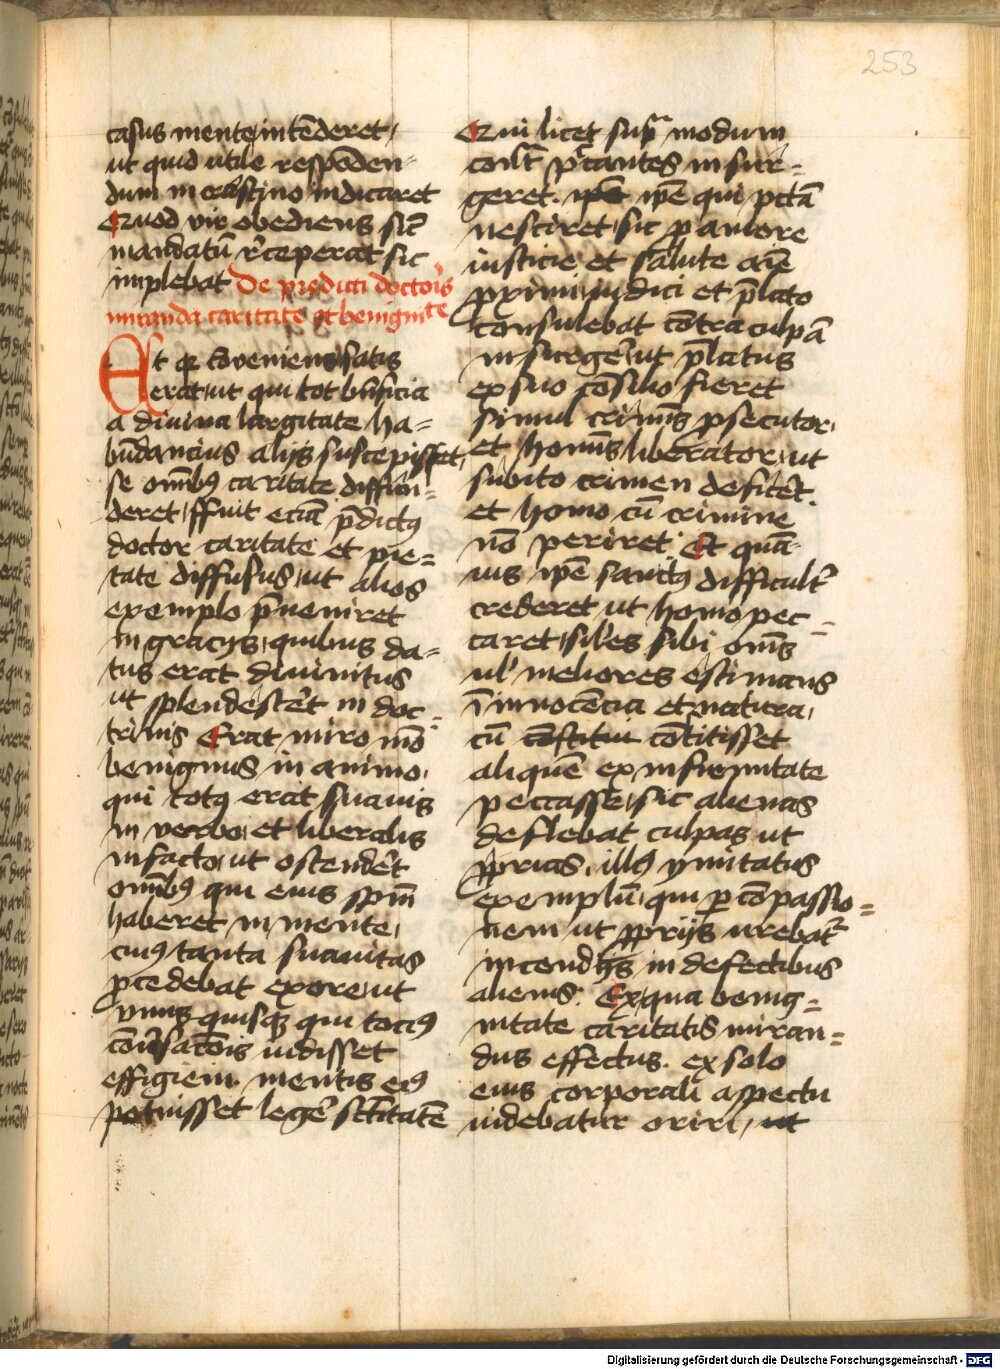 253
casus mente intēderet,
ut quid utile respōden-
dum in crastino indicaret
Quod vir obediens sic̄
mandatū rēceperat sic
implebat De predicti doctoris
miranda caritate et benignitate
Et qr cōveniens satis
erat ut qui tot bn̄ficia
a divina largitate ha-
būdancius alijs suscepisset,
se omībꝰ caritate diffūn-
deret, ffuit eciā p̄dictꝰ
doctor caritate et pie-
tate diffusus, ut alios
exemplo p̄veniret
in gracijs, quibus da-
tus erat divinitus
ut splendescēt in doc-
trinis Erat miro mō
benignus in animo,
qui totꝰ erat suavis
in verbo, et liberalis
in facto, ut ostendēt
omībꝰ qui eius spm̄
haberet in mente,
cuiꝰ tanta suavitas
pcedebat ex ore, ut
vnus quisqꝫ qui tociꝰ
cōv̄sacōis vidisset
effigiem mentis eiꝰ
potuisset legē sc̄titatē
Qui licet sup̄ modum
cont̄ p̄cantes in sur-
geret. ip̄e qui pctā
nesciret, sic p amore
iusticie et salute aīe
pximi, iudici et p̄lato
consulebat cōtra culpā
in surgē, ut p̄latus
ex suo cōsilio fieret
simul crimīs psecutor,
et homīs liberator, ut
subito crimen deficēt.
et homo cū crimine
nō periret. Et quā-
uis ip̄e sanctꝰ difficult̄
crederet ut homo pec-
caret, siles sibi om̄s
ul̄ meliores estimans
ī innocencia et natura,
cū constitui cōstitisset
aliquē ex infirmitate
peccasse, sic alienas
deflebat culpas, ut
pprias, illiꝰ ymitatus
exemplū, qui p cōpassio-
nem ut pprijs urebat̄
incendijs in defectibus
alienis. Ex qua benig-
nitate caritatis miran-
dus effectus. ex solo
eius corporali aspectu
videbatur oriri, ut
Digitalisierung gefördert durch die Deutsche Forschungsgemeinschaft - DFG